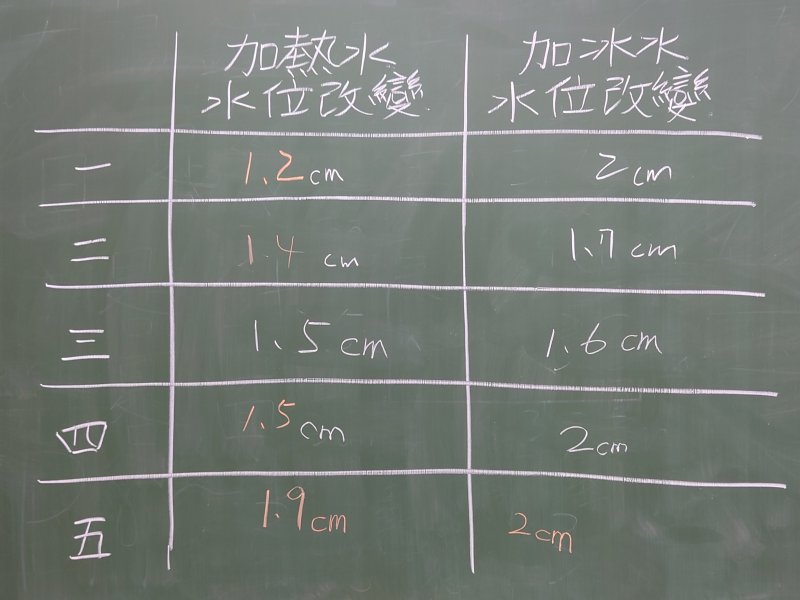 加熱水 加冰水
水位改變 水位改變
一 1.2cm 2cm
二 1.4 cm 1.7cm
三 1.5cm 1.6cm
四 1.5cm 2cm
五 1.9cm 2cm